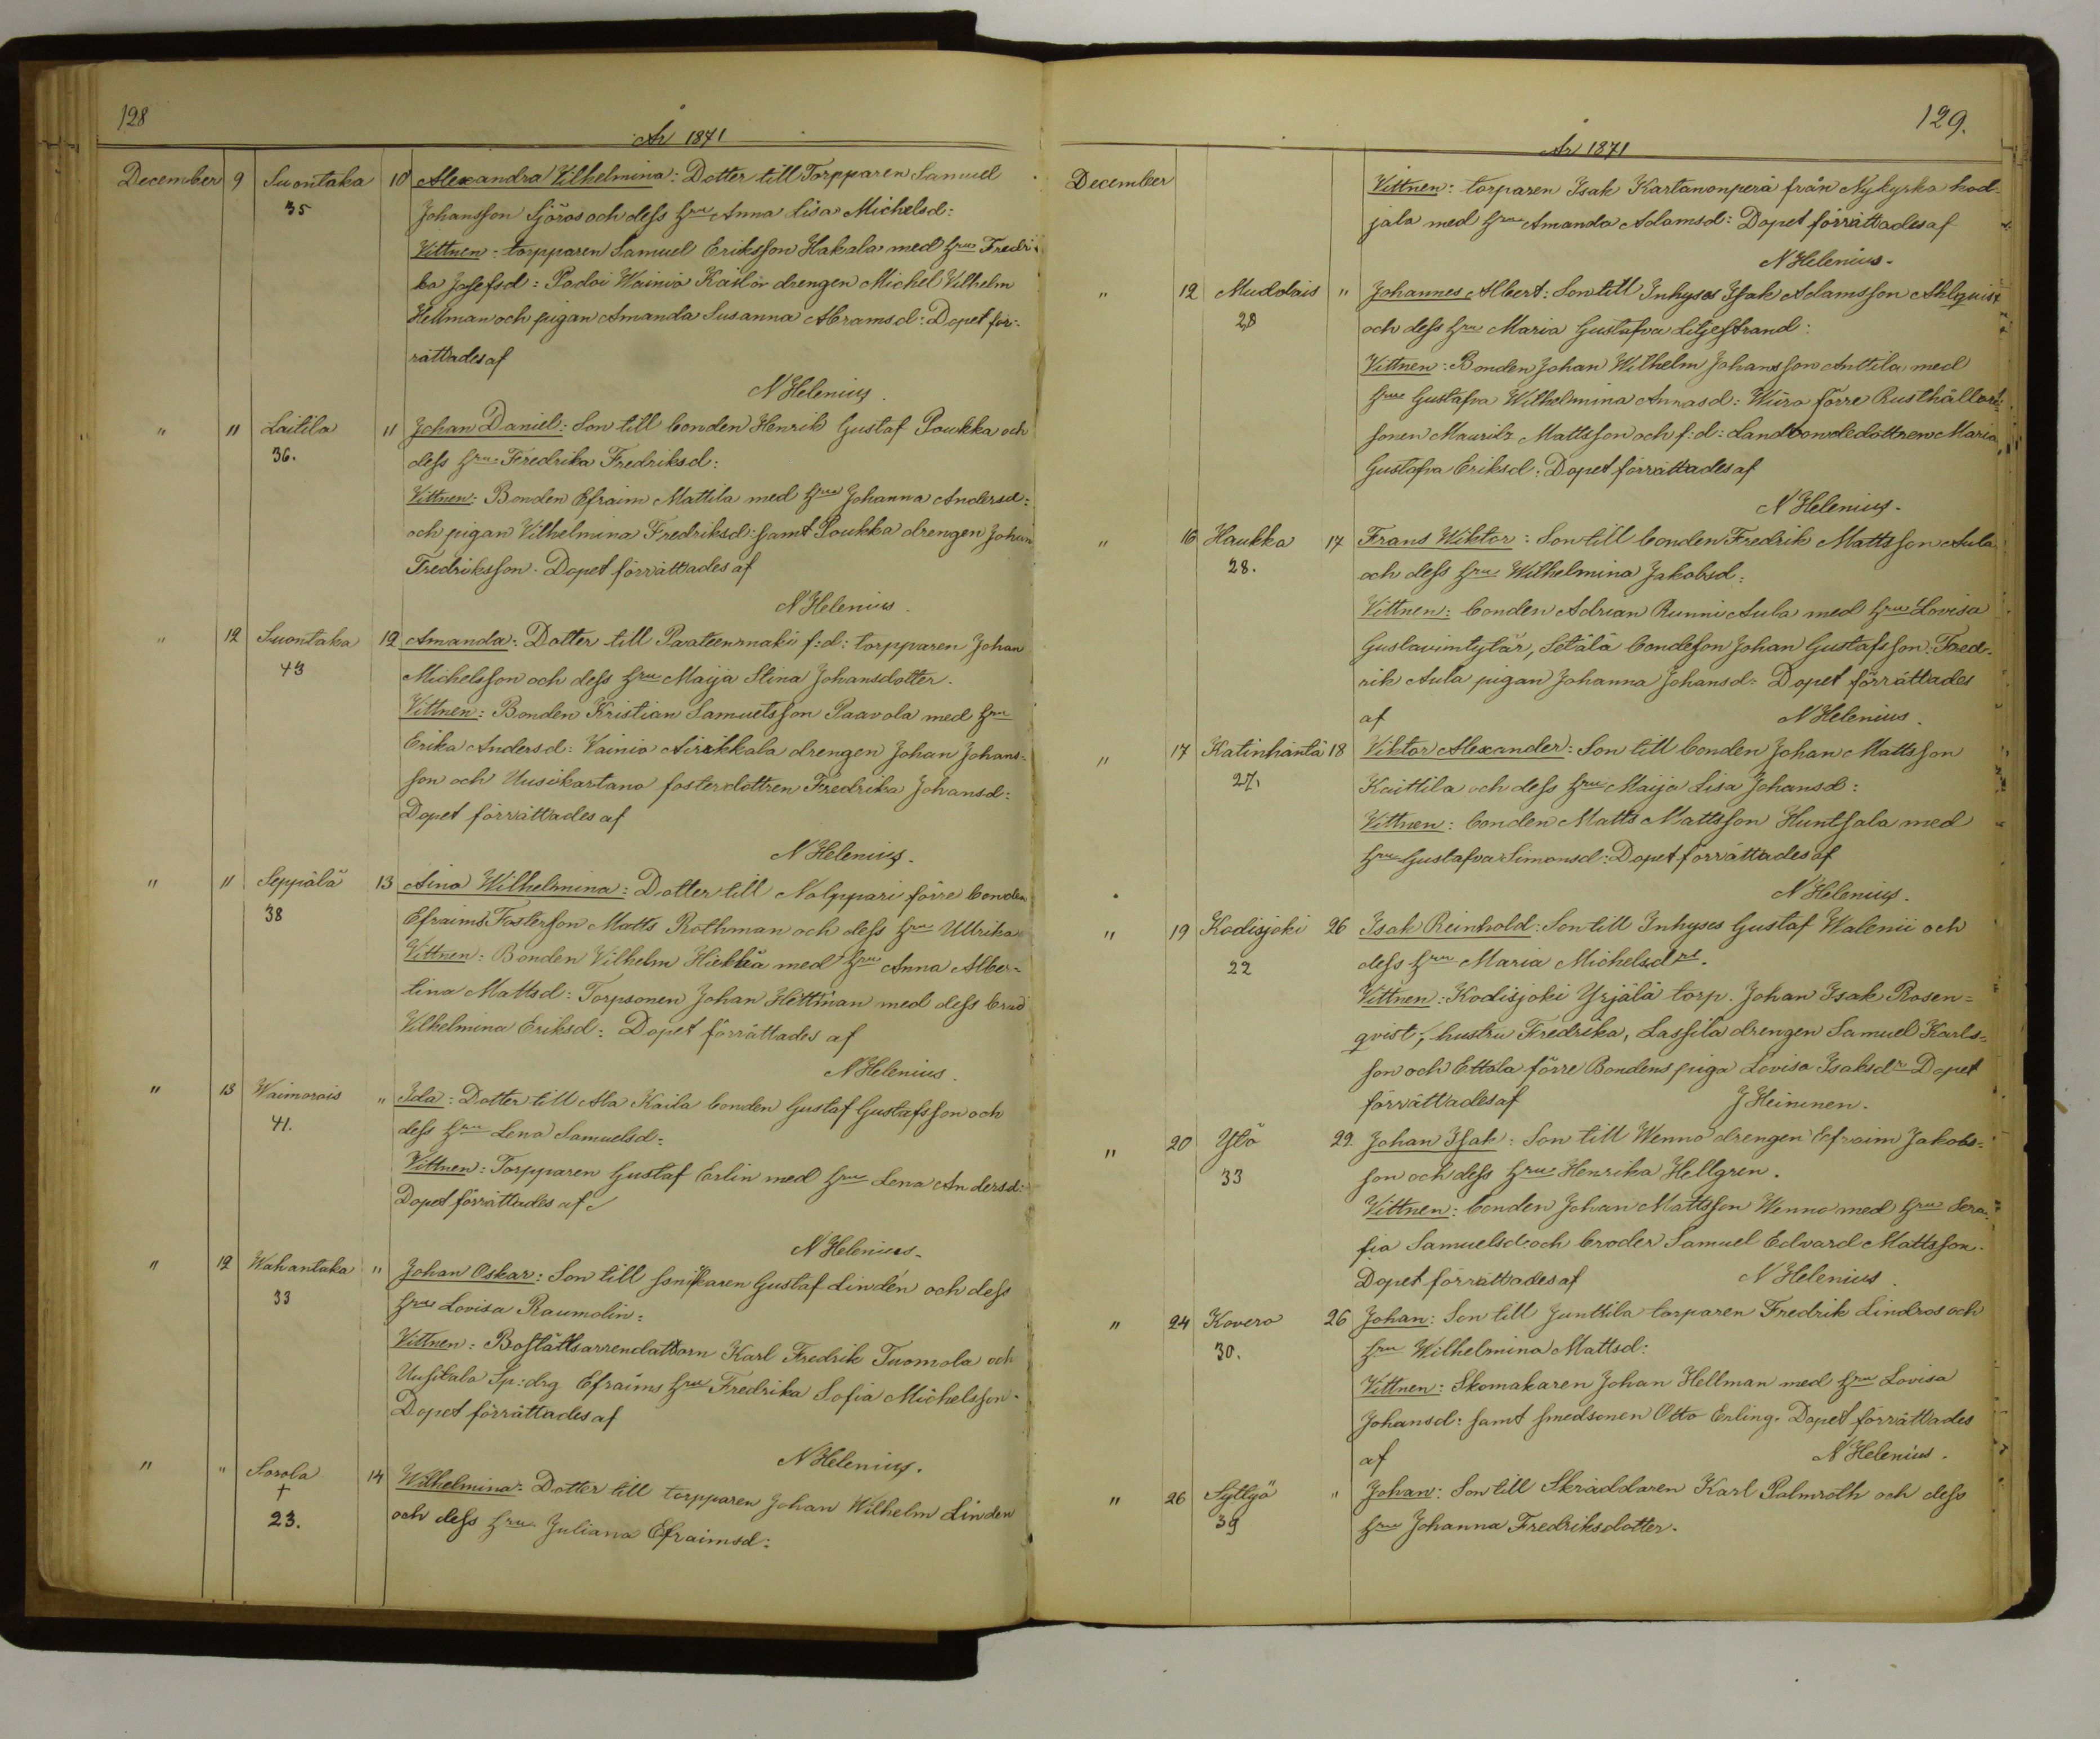 128
År 1871
December 9 Suontaka 10 Alexandra Vilhelmina: Dotter till Torpparen Samuel
35 Johansson Sjöros och dess Hru Anna Lisa Michelsd:
Vittnen: torpparen Samuel Eriksson Hakala med Hru Fredri-
ka Josefsd: Padoi Wainio drengen Michel Vilhelm
Hellman och pigan Amanda Susanna Abramsd: Dopet för-
rättades af
N Helenius.
" 11 Laitila 11 Johan Daniel: Son till bonden Henrik Gustaf Poukka och
36. dess Hru Fredrika Fredriksd:
Vittnen: Bonden Efraim Mattila med Hru Johanna Andersd:
och pigan Vilhelmina Fredriksd: samt Poukka drengen Johan
Fredriksson. Dopet förrättades af
N Helenius.
" 12 Suontaka 12 Amanda: Dotter till Paateenmäki f:d: torpparen Johan
43 Michelsson och dess Hru Maija Stina Johansdotter.
Vittnen: Bonden Kristian Samuelsson Paavola med Hru
Erika Andersd: Vainio Airikkala drengen Johan Johans-
son och Uusikartano fosterdottren Fredrika Johansd:
Dopet förrättades af
N Helenius.
" " Seppälä 13 Aina Wilhelmina: Dotter till Nolppari förre bonden
38 Efraims Fosterson Matts Rothman och dess Hru Ullrika
Vittnen: Bonden Vilhelm Hiekka med Hru Anna Alber-
tina Mattsd: Torpsonen Johan Hettman med dess brud
Vilhelmina Eriksd: Dopet förrättades af
N Helenius.
" 13 Waimorois " Ida: Dotter till Ala Kaila bonden Gustaf Gustafsson och
41. dess Hru Lena Samuelsd:
Vittnen: Torpparen Gustaf Erlin med Hru Lena Andersd:
Dopet förrättades af
N Helenius.
" 12 Wahantaka " Johan Oskar: Son till snikaren Gustaf Lindén och dess
33 Hru Lovisa Raumolin:
Vittnen: Boställsarrendatorn Karl Fredrik Tuomola och
Uusitalo Sp:drg Efraims Hru Fredrika Sofia Michelsson.
Dopet förrättades af
N Helenius.
" " Sorola 14 Wilhelmina: Dotter till torpparen Johan Wilhelm Linden
† och dess Hru Juliana Efraimsd:
23.
129.
År 1871
December Vittnen: torparen Isak Kartanonperä från Nykyrko hod-
jala med Hru Amanda Adamsd: Dopet förrättades af
N Helenius.
" 12 Muddais " Johannes Albert: Son till Inhyses Isak Adamsson Ahlquist
28 och dess Hru Maria Gustafva Liljestrand:
Vittnen: Bonden Johan Wilhelm Johansson Anttila med
Hru Gustafva Wilhelmina Annasd: Wiiro förre Rusthållare-
sonen Mauritz Mattsson och f:d: Landbondedottren Maria
Gustafva Eriksd: Dopet förrättades af
N Helenius.
" 16 Haukka 17 Frans Wiktor: Son till bonden Fredrik Mattsson Aula
28. och dess Hru Wilhelmina Jakobsd:
Vittnen: bonden Adrian Runni Aula med Hru Lovisa
Gustavintytär, Setälä bondeson Johan Gustafsson: Fred-
rik Aula pigan Johanna Johansd: Dopet förrättades
af N Helenius.
" 17 Katinhäntä 18 Viktor Alexander: Son till bonden Johan Mattsson
27. Kaittila och dess Hru Maija Lisa Johansd:
Vittnen: bonden Matts Mattsson Huntsala med
Hru Gustafva Simonsd: Dopet förrättades af
N Helenius.
" 19 Kodisjoki 26 Isak Reinhold: Son till Inhyses Gustaf Walenii och
22 dess Hru Maria Michelsdr.
Vittnen: Kodisjoki Yrjälä torp. Johan Isak Rosen-
qvist, hustru Fredrika, Lassila drengen Samuel Karls-
son och Ettala förre Bondens piga Lovisa Isaksdr Dopet
förrättades af J Heininen.
" 20 Ytö 22 Johan Isak: Son till Wenno drengen Efraim Jakobs-
33 son och dess Hru Henrika Hellgren.
Vittnen: bonden Johan Mattsson Wenno med Hru Sera-
fia Samuelsd: och broder Samuel Edvard Mattsson.
Dopet förrättades af N Helenius.
" 24 Kovero 26 Johan: Son till Junttila torparen Fredrik Lindros och
30. Hru Wilhelmina Mattsd:
Vittnen: Skomakaren Johan Hellman med Hru Lovisa
Johansd: samt smedsonen Otto Erling. Dopet förrättades
af N Helenius.
" 26 Syttyö " Johan: Son till Skräddaren Karl Palmroth och dess
39 Hru Johanna Fredriksdotter.